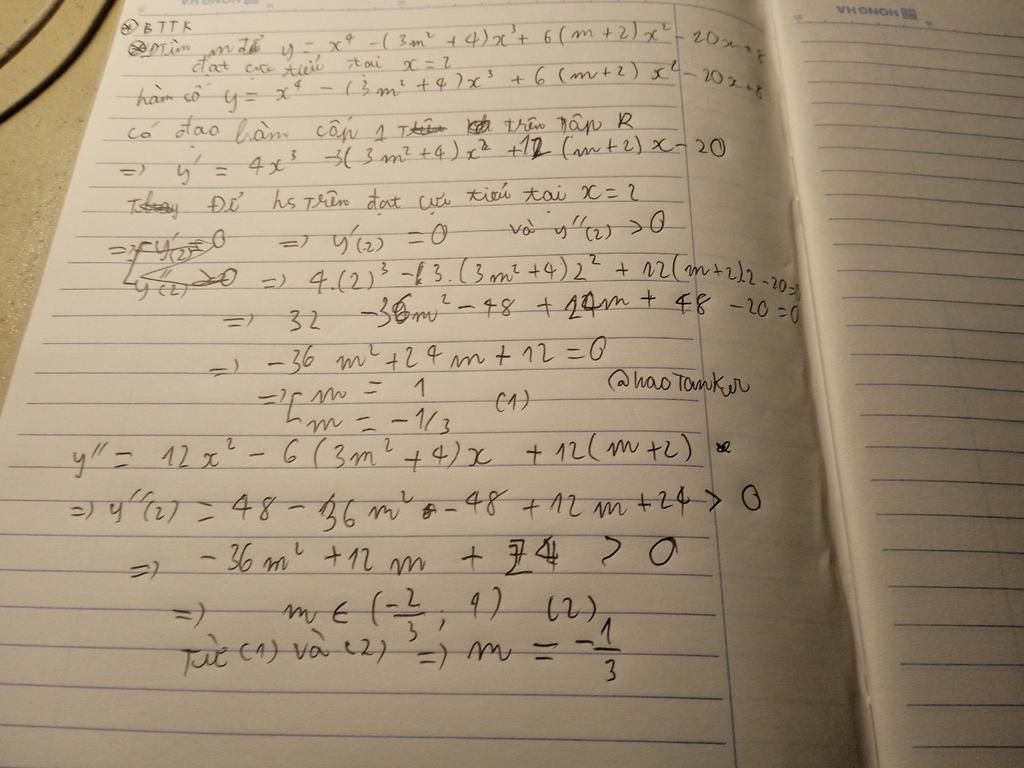 HONG HA
⊛ BTTK
Tìm m để y = x⁴ - (3m² + 4)x³ + 6(m+2)x² - 20x + 8
đạt cực tiểu tại x = 2
hàm số y = x⁴ - (3m² + 4)x³ + 6(m+2)x² - 20x + 8
có đạo hàm cấp 1 trên tập R
=> y' = 4x³ - 3(3m² + 4)x² + 12(m+2)x - 20
Để hs trên đạt cực tiểu tại x = 2
=> y'(2) = 0 và y''(2) > 0
=> 4.(2)³ - 3.(3m² + 4)2² + 12(m+2).2 - 20 = 0
=> 32 - 36m² - 48 + 24m + 48 - 20 = 0
=> -36m² + 24m + 12 = 0
=> [ m = 1
m = -1/3 (1)
@haoTanker
y'' = 12x² - 6(3m² + 4)x + 12(m+2)
=> y''(2) = 48 - 36m² - 48 + 12m + 24 > 0
=> -36m² + 12m + 24 > 0
=> m ∈ (-2/3 ; 1) (2)
Từ (1) và (2) => m = -1/3